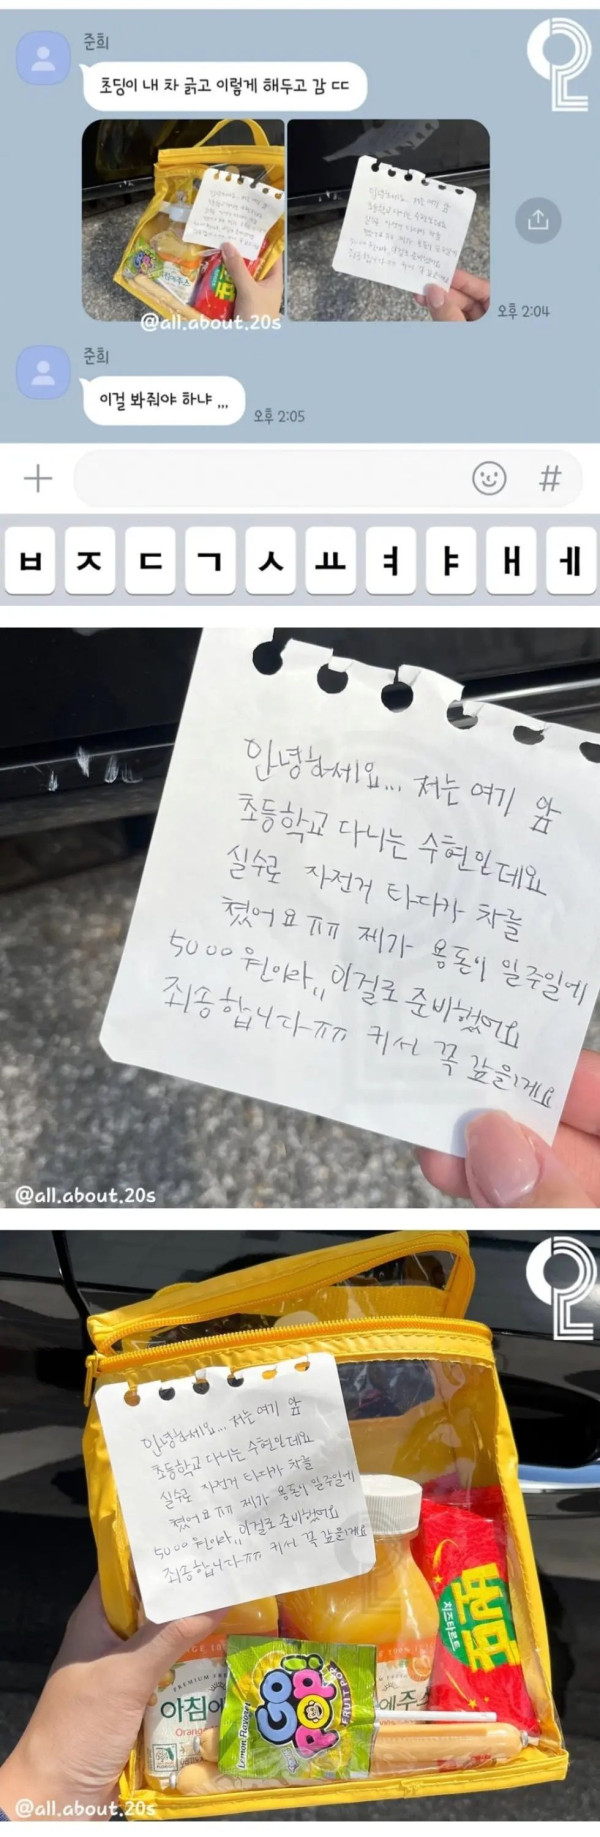 준희
초딩이 내 차 긁고 이렇게 해두고 감 ㄷㄷ
@all.about.20s
오후 2:04
준희
이걸 봐줘야 하냐 ,,,
오후 2:05
#
ㅂ ㅈ ㄷ ㄱ ㅅ ㅛ ㅕ ㅑ ㅐ ㅔ
안녕하세요... 저는 여기 앞
초등학교 다니는 수현인데요
실수로 자전거 타다가 차를
쳤어요ㅠㅠ 제가 용돈이 일주일에
5000원이라,, 이걸로 준비했어요
죄송합니다ㅠㅠ 커서 꼭 갚을게요
@all.about.20s
안녕하세요... 저는 여기 앞
초등학교 다니는 수현인데요
실수로 자전거 타다가 차를
쳤어요ㅠㅠ 제가 용돈이 일주일에
5000원이라,, 이걸로 준비했어요
죄송합니다ㅠㅠ 커서 꼭 갚을게요
치즈타르트
PREMIUM
아침에
Orange
에주스
GO
POP!
FRUIT POP
Lemon Flavored
@all.about.20s